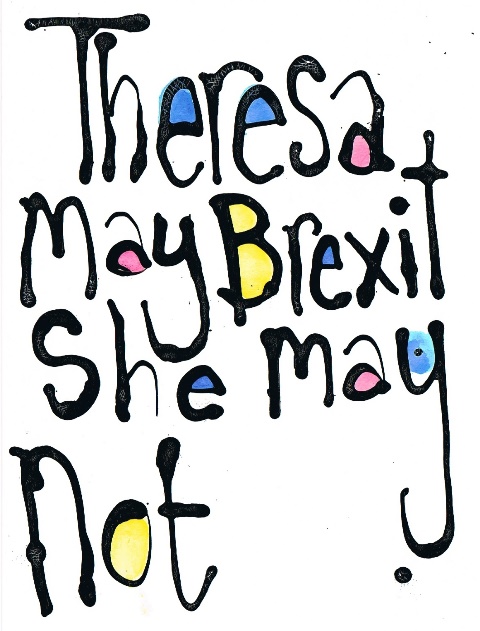 Theresa
May Brexit
She may
Not.